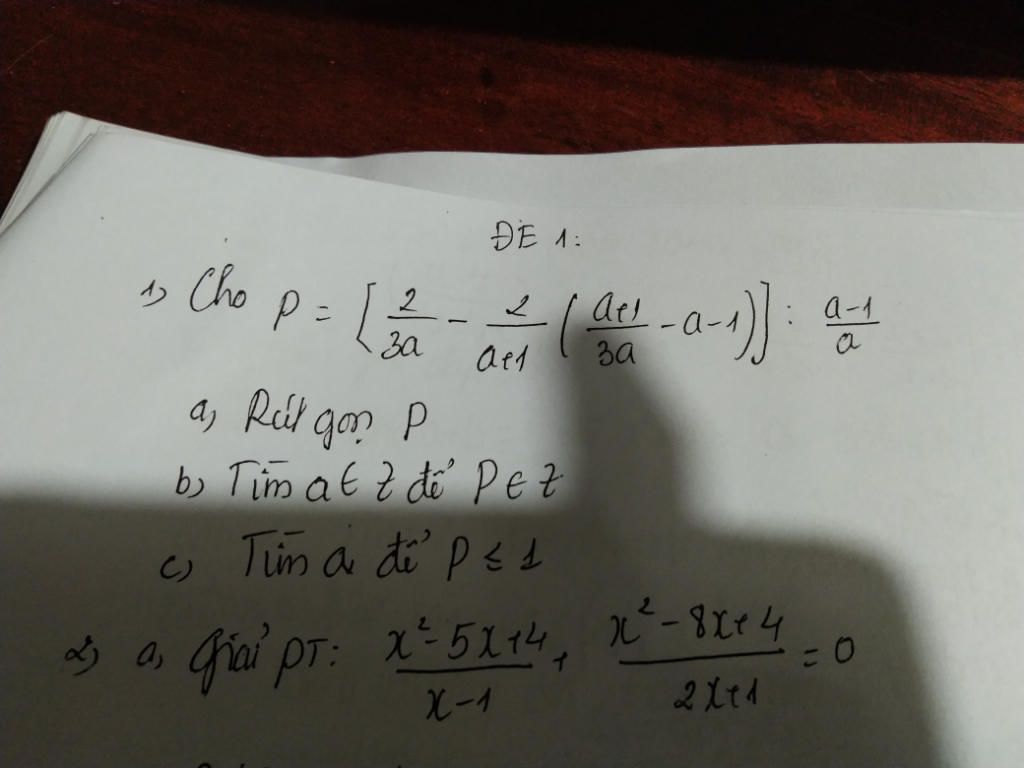 ĐỀ 1:
1) Cho P = [ 2/3a - 2/a+1 ( a+1/3a - a - 1 ) ] : a-1/a
a) Rút gọn P
b) Tìm a ∈ Z để P ∈ Z
c) Tìm a để P ≤ 1
2) a) Giải PT: x² - 5x + 4/x - 1 + x² - 8x + 4/2x + 1 = 0